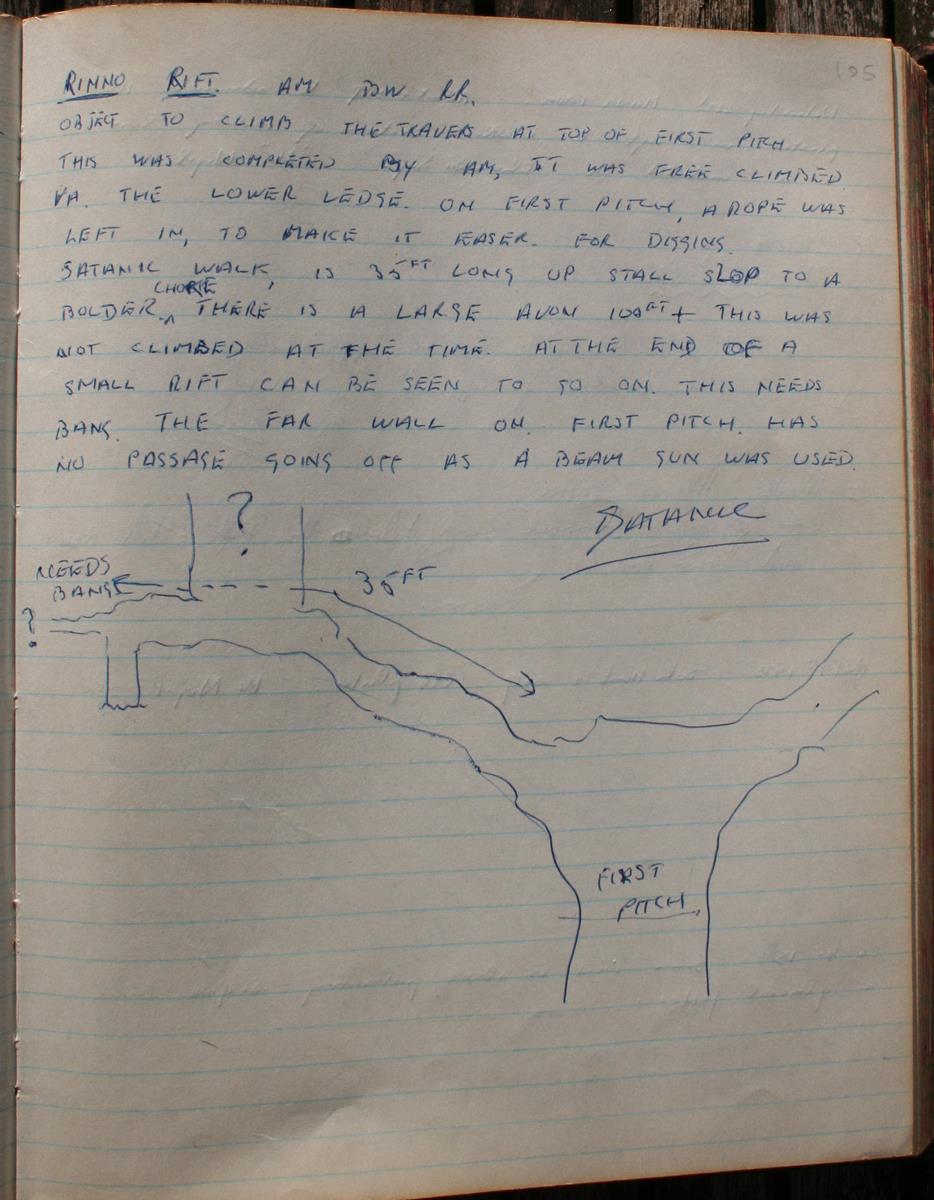 105
RIMMO RIFT. AM DW RR.
OBJET TO CLIMB THE TRAVERS AT TOP OF FIRST PITCH
THIS WAS COMPLETED BY AM, IT WAS FREE CLIMBED
VIA. THE LOWER LEDGE. ON FIRST PITCH, A ROPE WAS
LEFT IN, TO MAKE IT EASER. FOR DIGGING.
SATANIC WALK, IS 35FT LONG UP STALL SLOP TO A
CHOKE
BOLDER THERE IS A LARGE AVON 100FT+ THIS WAS
NOT CLIMBED AT THE TIME. AT THE END OF A
SMALL RIFT CAN BE SEEN TO GO ON. THIS NEEDS
BANG. THE FAR WALL ON FIRST PITCH. HAS
NO PASSAGE GOING OFF AS A BEAM GUN WAS USED.
?
NEEDS
BANG
35FT
?
FIRST
PITCH